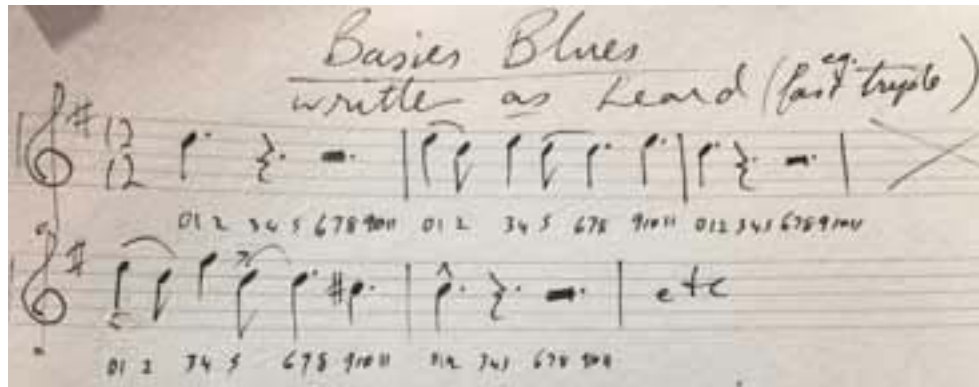 Basies Blues
written as heard (eg. fast triple)
12
12
01 2 3 4 5 6 7 8 9 10 11 01 2 3 4 5 6 7 8 9 10 11 0 1 2 3 4 5 6 7 8 9 10 11
etc
01 2 3 4 5 6 7 8 9 10 11 0 1 2 3 4 5 6 7 8 9 10 11